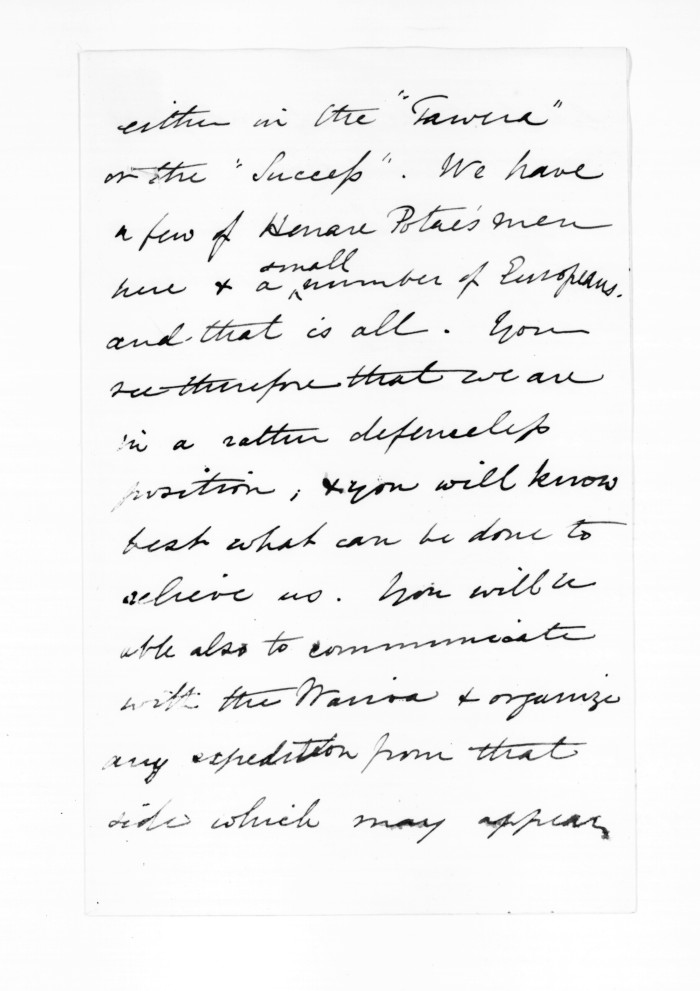 either in the "Tawera"
or the "Success". We have
a few of Henare Potae's men
here & a small number of Europeans.
and that is all. You
see therefore that we are
in a rather defenceless
position, & you will know
best what can be done to
relieve us. You will be
able also to communicate
with the Wairoa & organize
any expedition from that
side which may appear